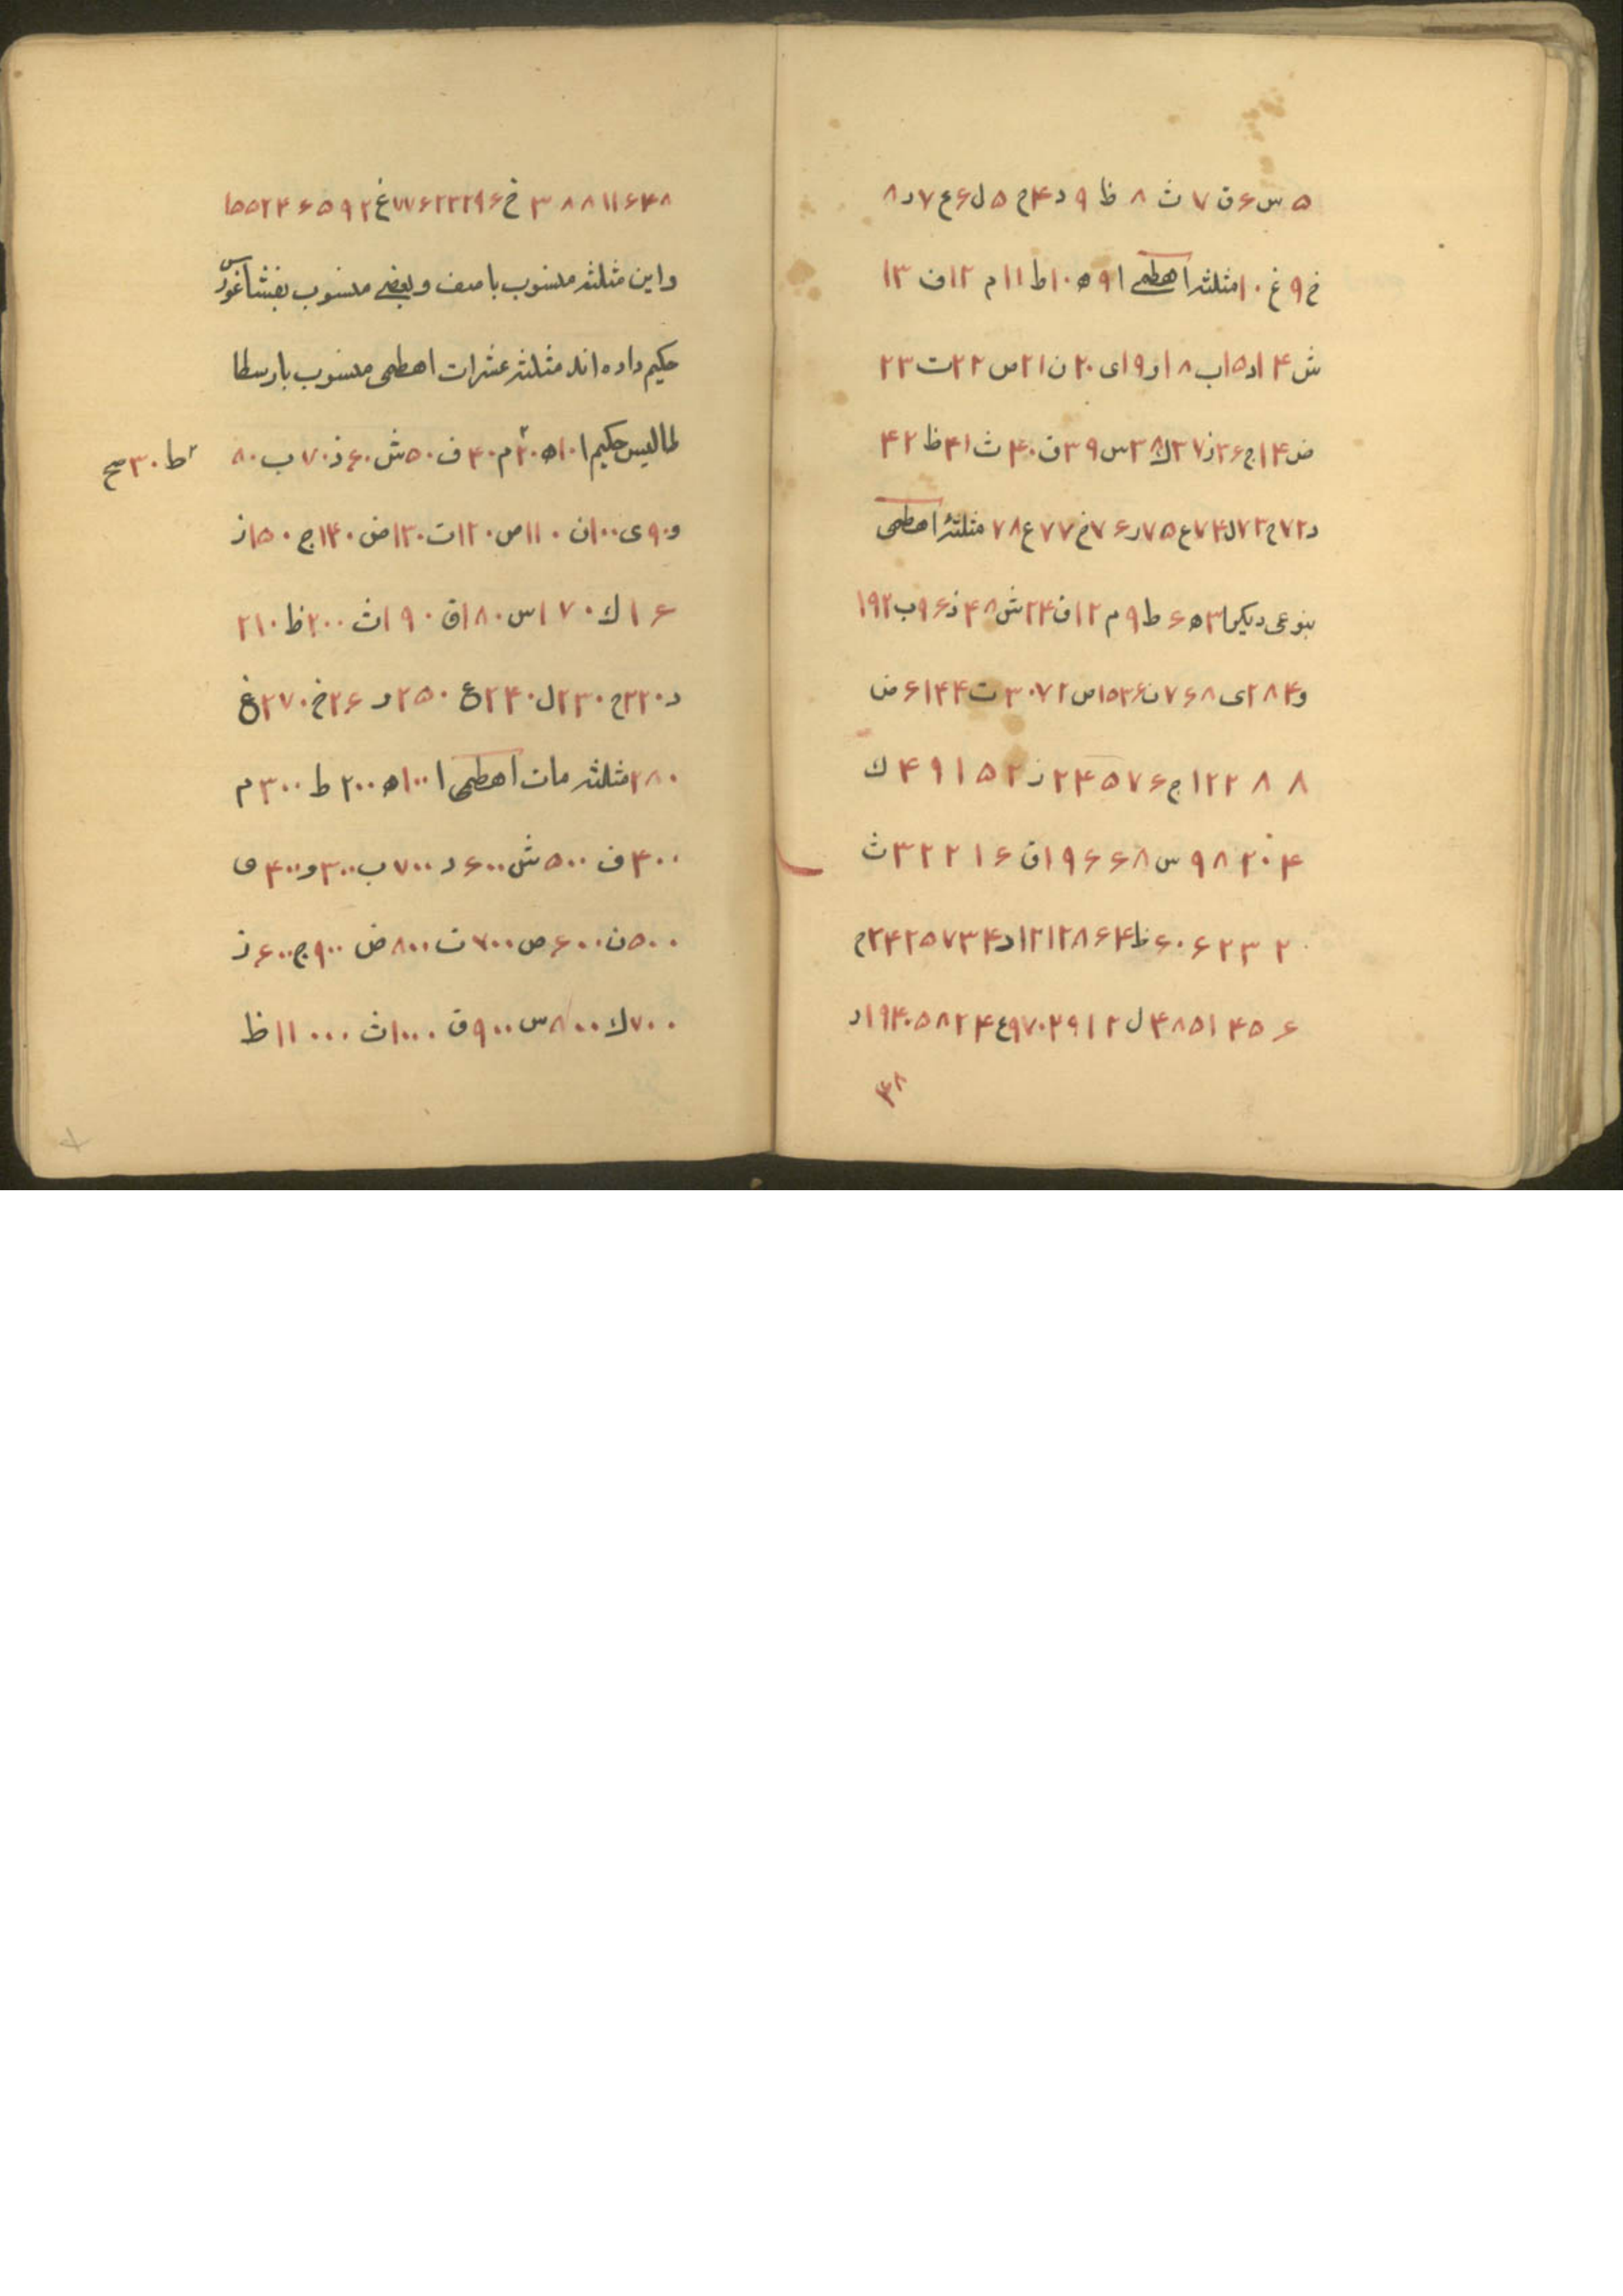 ۵ س ۶ ق ۷ ث ۸ ظ ۹ د ۴ ح ۵ ل ۶ ع ۷ ر ۸
خ ۹ غ ۱۰ مثلثه اهطمی ا ۹ ه ۱۰ ط ۱۱ م ۱۲ ف ۱۳
ش ۱۴ د ۱۵ ب ۱۸ و ۱۹ ی ۲۰ ن ۲۱ ص ۲۲ ت ۲۳
ض ۱۴ ج ۳۶ ز ۳۷ ك ۳۸ س ۳۹ ق ۴۰ ث ۴۱ ظ ۴۲
د ۷۲ ح ۷۳ ل ۷۴ ع ۷۵ ر ۷۶ خ ۷۷ غ ۷۸ مثلثهٔ اهطمی
بنوعی دیکر ا ۳ ه ۶ ط ۹ م ۱۲ ف ۲۴ ش ۴۸ ذ ۹۶ ب ۱۹۲
و ۳۸۴ ی ۷۶۸ ن ۱۵۳۶ ص ۳۰۷۲ ت ۶۱۴۴ ض
۱۲۲۸۸ ج ۲۴۵۷۶ ز ۴۹۱۵۲ ك
۹۸۳۰۴ س ۱۹۶۶۰۸ ق ۳۲۲۱۶ ث
۶۰۶۲۳۲ ظ ۱۲۱۲۸۶۴ د ۲۴۲۵۷۳۴ ح
۴۸۵۱۴۵۶ ل ۹۷۰۲۹۱۲ ع ۱۹۴۰۵۸۲۴ ر
۳۸
۳۸۸۱۱۶۴۸ خ ۷۷۶۲۳۲۹۶ غ ۱۵۵۲۴۶۵۹۲
واین مثلثه منسوب باصف وبعضی منسوب بفیثاغورس
حکیم داده اند مثلثه عشرات اهطمی منسوب بارسطا
طالیس حکیم ا ۱۰ ه ۲۰ م ۴۰ ف ۵۰ ش ۶۰ ذ ۷۰ ب ۸۰
ط ۳۰ صح
و ۹۰ ی ۱۰۰ ن ۱۱۰ ص ۱۲۰ ت ۱۳۰ ض ۱۴۰ ج ۱۵۰ ز
۱۶ ك ۱۷۰ س ۱۸۰ ق ۱۹۰ ث ۲۰۰ ظ ۲۱۰
د ۲۲۰ ح ۲۳۰ ل ۲۴۰ ع ۲۵۰ ر ۲۶ خ ۲۷۰ غ
۲۸۰ مثلثه مات اهطمی ا ۱۰۰ ه ۲۰۰ ط ۳۰۰ م
۴۰۰ ف ۵۰۰ ش ۶۰۰ د ۷۰۰ ب ۳۰۰ و ۴۰۰ ی
۵۰۰ ن ۶۰۰ ص ۷۰۰ ت ۸۰۰ ض ۹۰۰ ج ۶۰۰ ز
۷۰۰ ك ۸۰۰ س ۹۰۰ ق ۱۰۰۰ ث ۱۱۰۰۰ ظ